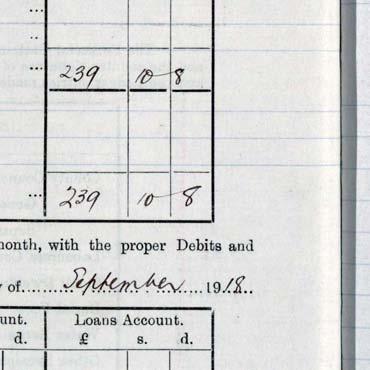 ... 239 10 8
... 239 10 8
month, with the proper Debits and
y of September 1918
unt. Loans Account.
d. £ s. d.